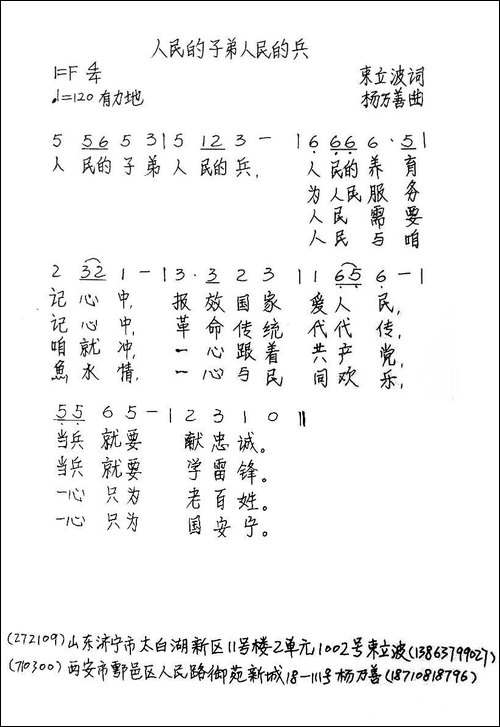 人民的子弟人民的兵
1=F 4/4 束立波词
♩=120 有力地 杨万善曲
5 56 5 3 | 5 12 3 - | 6 66 6 · 5 |
人 民的 子 弟 人 民的 兵, 人 民的 养 育
为 人民 服 务
人 民 需 要
人 民 与 咱
2 32 1 - | 3 · 3 2 3 | 1 1 65 6 - |
记 心 中, 报 效 国 家 爱 人 民,
记 心 中, 革 命 传 统 代 代 传,
咱 就 冲, 一 心 跟 着 共 产 党,
魚 水 情, 一 心 与 民 同 欢 乐,
55 6 5 - | 2 3 1 0 ‖
当兵 就要 献 忠 诚。
当兵 就要 学 雷 锋。
一心 只为 老 百 姓。
一心 只为 国 安 宁。
(272109)山东济宁市太白湖新区11号楼2单元1002号束立波(13863799027)
(710300)西安市鄠邑区人民路御苑新城18-111号杨万善(18710818796)